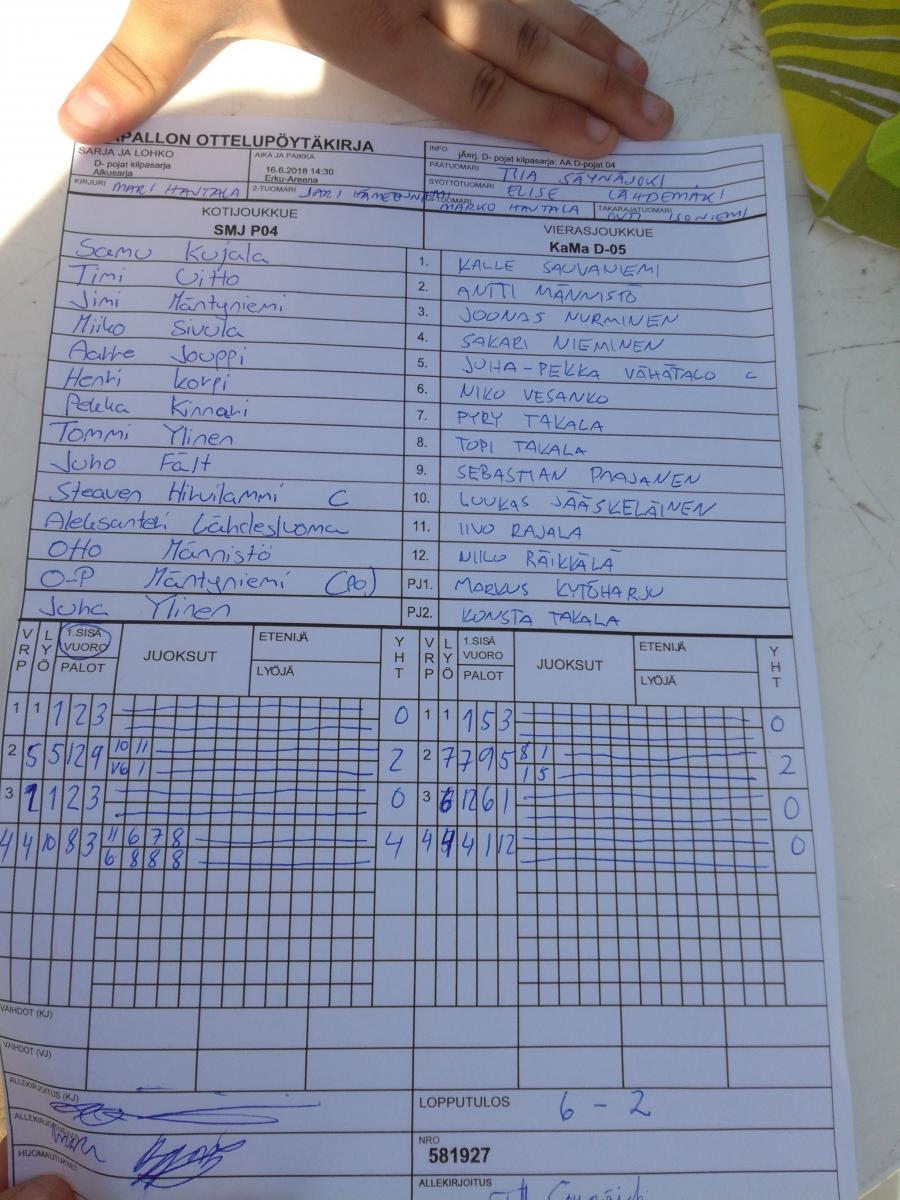 APALLON OTTELUPÖYTÄKIRJA
SARJA JA LOHKO
D- pojat kilpasarja
Alkusarja
AIKA JA PAIKKA
16.6.2018 14:30
Erku-Areena
INFO
D- pojat kilpasarja: AA D-pojat 04
PÄÄTUOMARI TIIA SÄYNÄJOKI
KIRJURI MARI HANTALA
2-TUOMARI JARI
SYÖTTÖTUOMARI ELISE LÄHDEMÄKI
MARKO HANTALA
TAKARAJATUOMARI OUTI ISONIEMI
KOTIJOUKKUE
SMJ P04
VIERASJOUKKUE
KaMa D-05
Samu Kujala 1. KALLE SAUVANIEMI
Timi Uitto 2. ANTTI MÄNNISTÖ
Jimi Mäntyniemi 3. JOONAS NURMINEN
Miiko Sivula 4. SAKARI NIEMINEN
Aatte Jouppi 5. JUHA-PEKKA VÄHÄTALO C
Henri Korpi 6. NIKO VESANKO
Pekka Kinnari 7. PYRY TAKALA
Tommi Ylinen 8. TOPI TAKALA
Juho Fält 9. SEBASTIAN PAAJANEN
Steaven Hirvilammi C 10. LUUKAS JÄÄSKELÄINEN
Aleksanteri Lähdesluoma 11. IIVO RAJALA
Otto Männistö 12. NIILO RÄIKKÄLÄ
O-P Mäntyniemi (PO) PJ1. MARKUS KYTÖHARJU
Juha Ylinen PJ2. KONSTA TAKALA
VRP LYÖ 1.SISÄ VUORO PALOT JUOKSUT ETENIJÄ LYÖJÄ YHT VRP LYÖ 1.SISÄ VUORO PALOT JUOKSUT ETENIJÄ LYÖJÄ YHT
1 1 1 2 3 0 1 1 1 5 3 0
2 5 5 12 9 10 11 2 2 7 7 9 5 8 1 2
V6 1 1 5
3 1 1 2 3 0 3 6 12 6 1 0
4 4 10 8 3 11 6 7 8 4 4 4 4 1 12 0
6 8 8 8
VAIHDOT (KJ)
VAIHDOT (VJ)
ALLEKIRJOITUS (KJ)
LOPPUTULOS 6 - 2
NRO
581927
HUOMAUTUKSET
ALLEKIRJOITUS